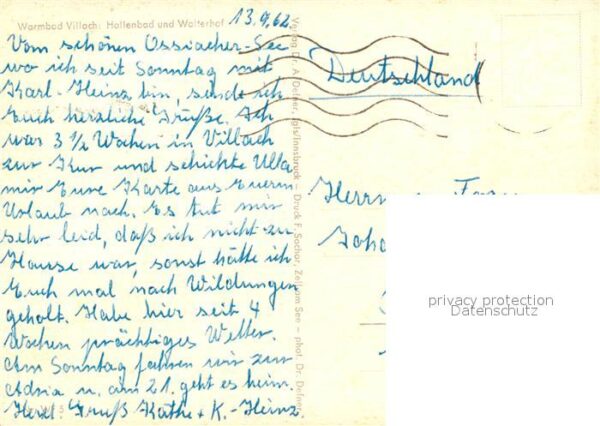 Warmbad Villach: Hallenbad und Walterhof
13.9.62
Vom schönen Ossiacher-See
wo ich seit Sonntag mit
Karl-Heinz bin, sende ich
Euch herzliche Grüße. Ich
war 3 1/2 Wochen in Villach
zur Kur und schickte Ulla
mir Eure Karte aus Eurem
Urlaub nach. Es tut mir
sehr leid, daß ich nicht zu
Hause war, sonst hätte ich
Euch mal nach Wildungen
geholt. Habe hier seit 4
Wochen prächtiges Wetter.
Am Sonntag fahren wir zur
Adria u. am 21. geht es heim.
Herzl. Gruß Käthe + K.-Heinz
Verlag Dr. A. Defner, Igls/Innsbruck — Druck F. Sochor, Zell am See — phot. Dr. Defner
Deutschland
Herrn
privacy protection
Datenschutz